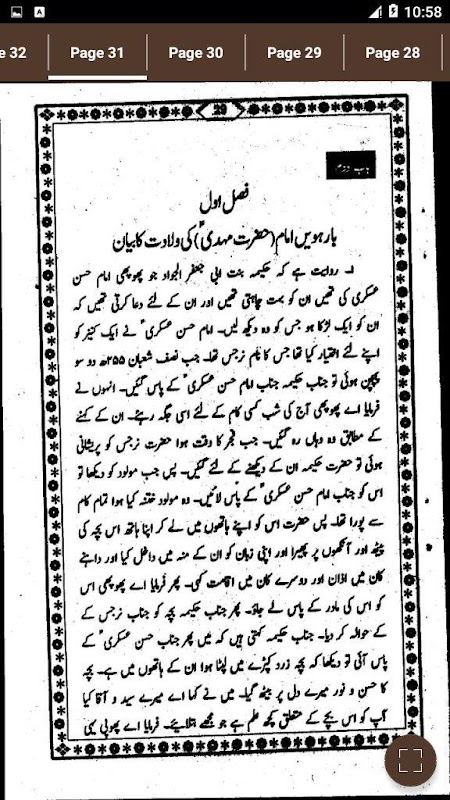 10:58
Page 32
Page 31
Page 30
Page 29
Page 28
29
باب دوم
فصل اول
بارہویں امام (حضرت مہدیؑ) کی ولادت کا بیان
۱۔ روایت ہے کہ حکیمہ بنت ابی جعفر الجواد جو پھوپھی امام حسن
عسکری کی تھیں ان کو بہت چاہتی تھیں اور ان کے لئے دعا کرتی تھیں کہ
ان کو ایک لڑکا ہو جس کو وہ دیکھ لیں۔ امام حسن عسکریؑ نے ایک کنیز کو
اپنے لئے اختیار کیا تھا جس کا نام نرجس تھا۔ جب نصف شعبان ۲۵۵ھ دو سو
پچپن ہوئی تو جناب حکیمہ جناب امام حسن عسکریؑ کے پاس گئیں۔ انہوں نے
فرمایا اے پھوپھی آج کی شب کسی کام کے لئے اسی جگہ رہئے۔ ان کے کہنے
کے مطابق وہ وہاں رہ گئیں۔ جب فجر کا وقت ہوا حضرت نرجس کو پریشانی
ہوئی تو حضرت حکیمہ ان کے دیکھنے کے لئے گئیں۔ پس جب مولود کو دیکھا تو
اس کو جناب امام حسن عسکریؑ کے پاس لائیں۔ وہ مولود ختنہ کیا ہوا تمام کام
سے پورا تھا۔ پس حضرت اس کو اپنے ہاتھوں میں لے کر اپنا ہاتھ اس بچہ کی
پیٹھ اور آنکھوں پر پھیرا اور اپنی زبان کو ان کے منہ میں داخل کیا اور داہنے
کان میں اذان اور دوسرے کان میں اقامت کہی۔ پھر فرمایا اے پھوپھی اس
کو اس کی مادر کے پاس لے جاؤ۔ پھر جناب حکیمہ بچہ کو جناب نرجس کے
کے حوالہ کر دیا۔ جناب حکیمہ کہتی ہیں کہ میں پھر جناب حسن عسکریؑ کے
پاس آئی تو دیکھا کہ بچہ زرد کپڑے میں لپٹا ہوا ان کے ہاتھوں میں ہے۔ بچہ
کا حسن و نور میرے دل پر بیٹھ گیا۔ میں نے کہا اے میرے سید و آقا کیا
آپ کو اس بچے کے متعلق کچھ علم ہے جو مجھے بتلائیے۔ فرمایا اے پھوپی یہی